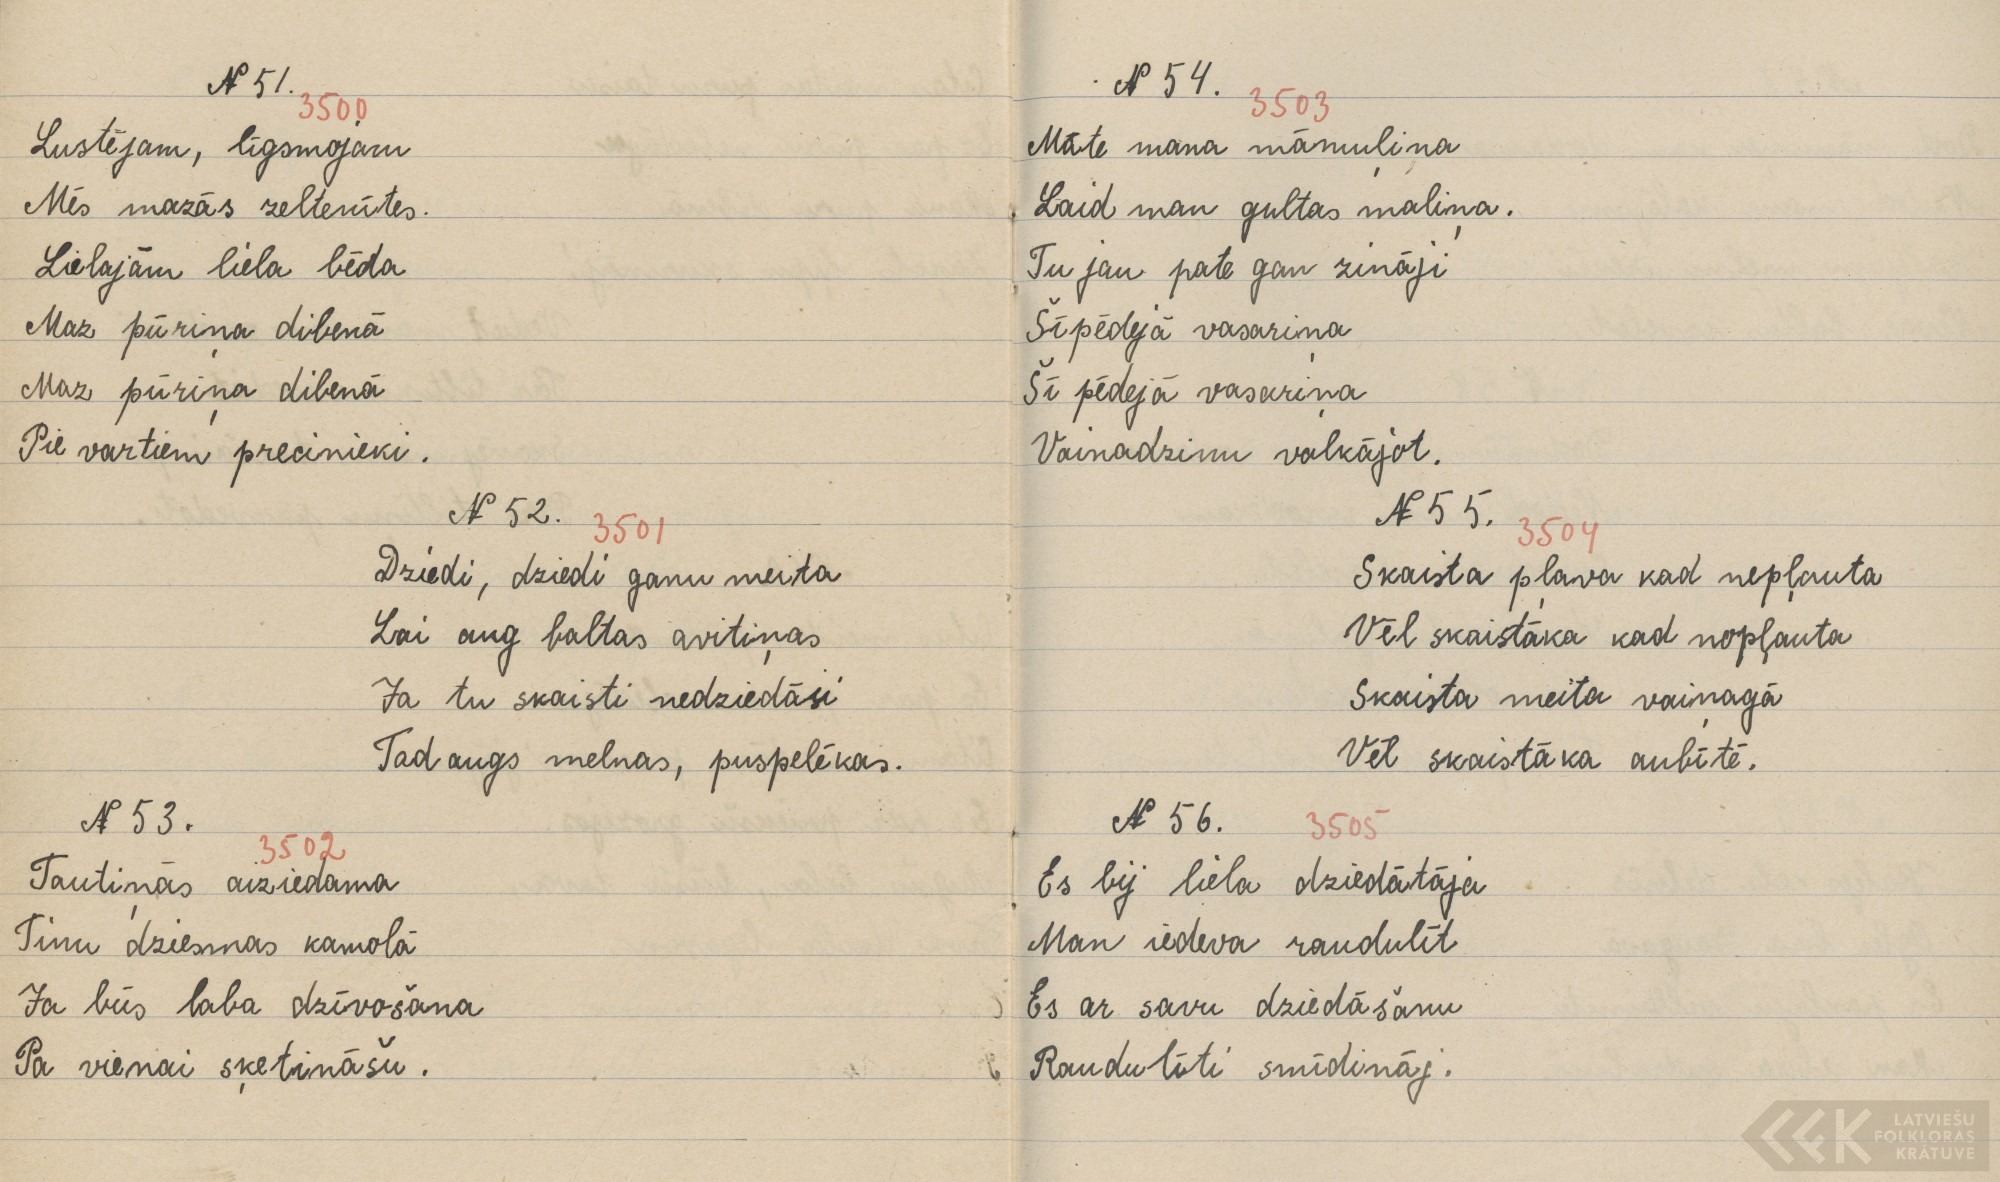 № 51.
3500
Lustējam, līgsmojam
Mēs mazās zeltenītes.
Lielajām liela bēda
Maz pūriņa dibenā
Maz pūriņa dibenā
Pie vartiem precinieki.
№ 52.
3501
Dziedi, dziedi ganu meita
Lai aug baltas avitiņas
Ja tu skaisti nedziedāsi
Tad augs melnas, puspelēkas.
№ 53.
3502
Tautiņās aiziedama
Tinu dziesmas kamolā
Ja būs laba dzīvošana
Pa vienai sķetināšu.
№ 54.
3503
Māte mana māmuļiņa
Laid man gultas maliņa.
Tu jau pate gan zināji
Šī pēdejā vasariņa
Šī pēdejā vasariņa
Vainadzinu valkājot.
№ 55.
3504
Skaista pļava kad nepļauta
Vēl skaistāka kad nopļauta
Skaista meita vaiņagā
Vēl skaistāka aubītē.
№ 56.
3505
Es bij liela dziedātāja
Man iedeva raudulīt
Es ar savu dziedāšanu
Raudulīti smīdināj.
LATVIEŠU
FOLKLORAS
KRĀTUVE